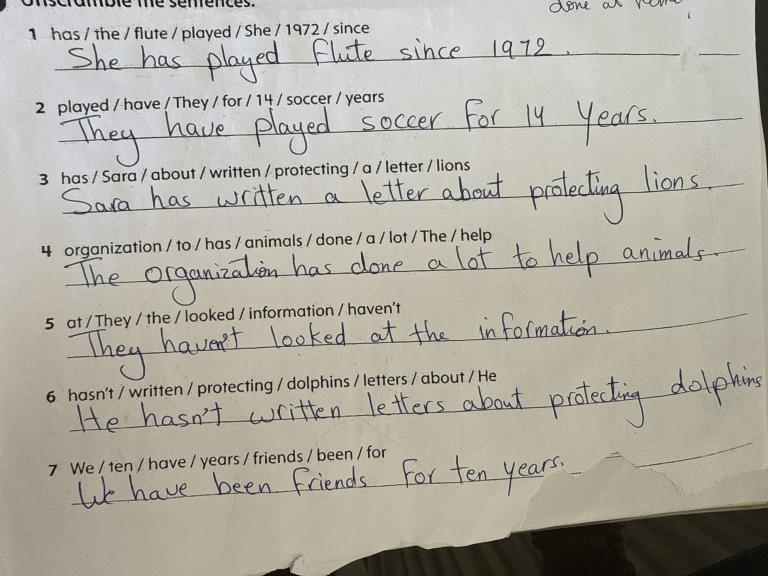 Unscramble the sentences.
done at home
1 has / the / flute / played / She / 1972 / since
She has played flute since 1972.
2 played / have / They / for / 14 / soccer / years
They have played soccer for 14 years.
3 has / Sara / about / written / protecting / a / letter / lions
Sara has written a letter about protecting lions.
4 organization / to / has / animals / done / a / lot / The / help
The organization has done a lot to help animals.
5 at / They / the / looked / information / haven't
They haven't looked at the information.
6 hasn't / written / protecting / dolphins / letters / about / He
He hasn't written letters about protecting dolphins
7 We / ten / have / years / friends / been / for
We have been friends for ten years.